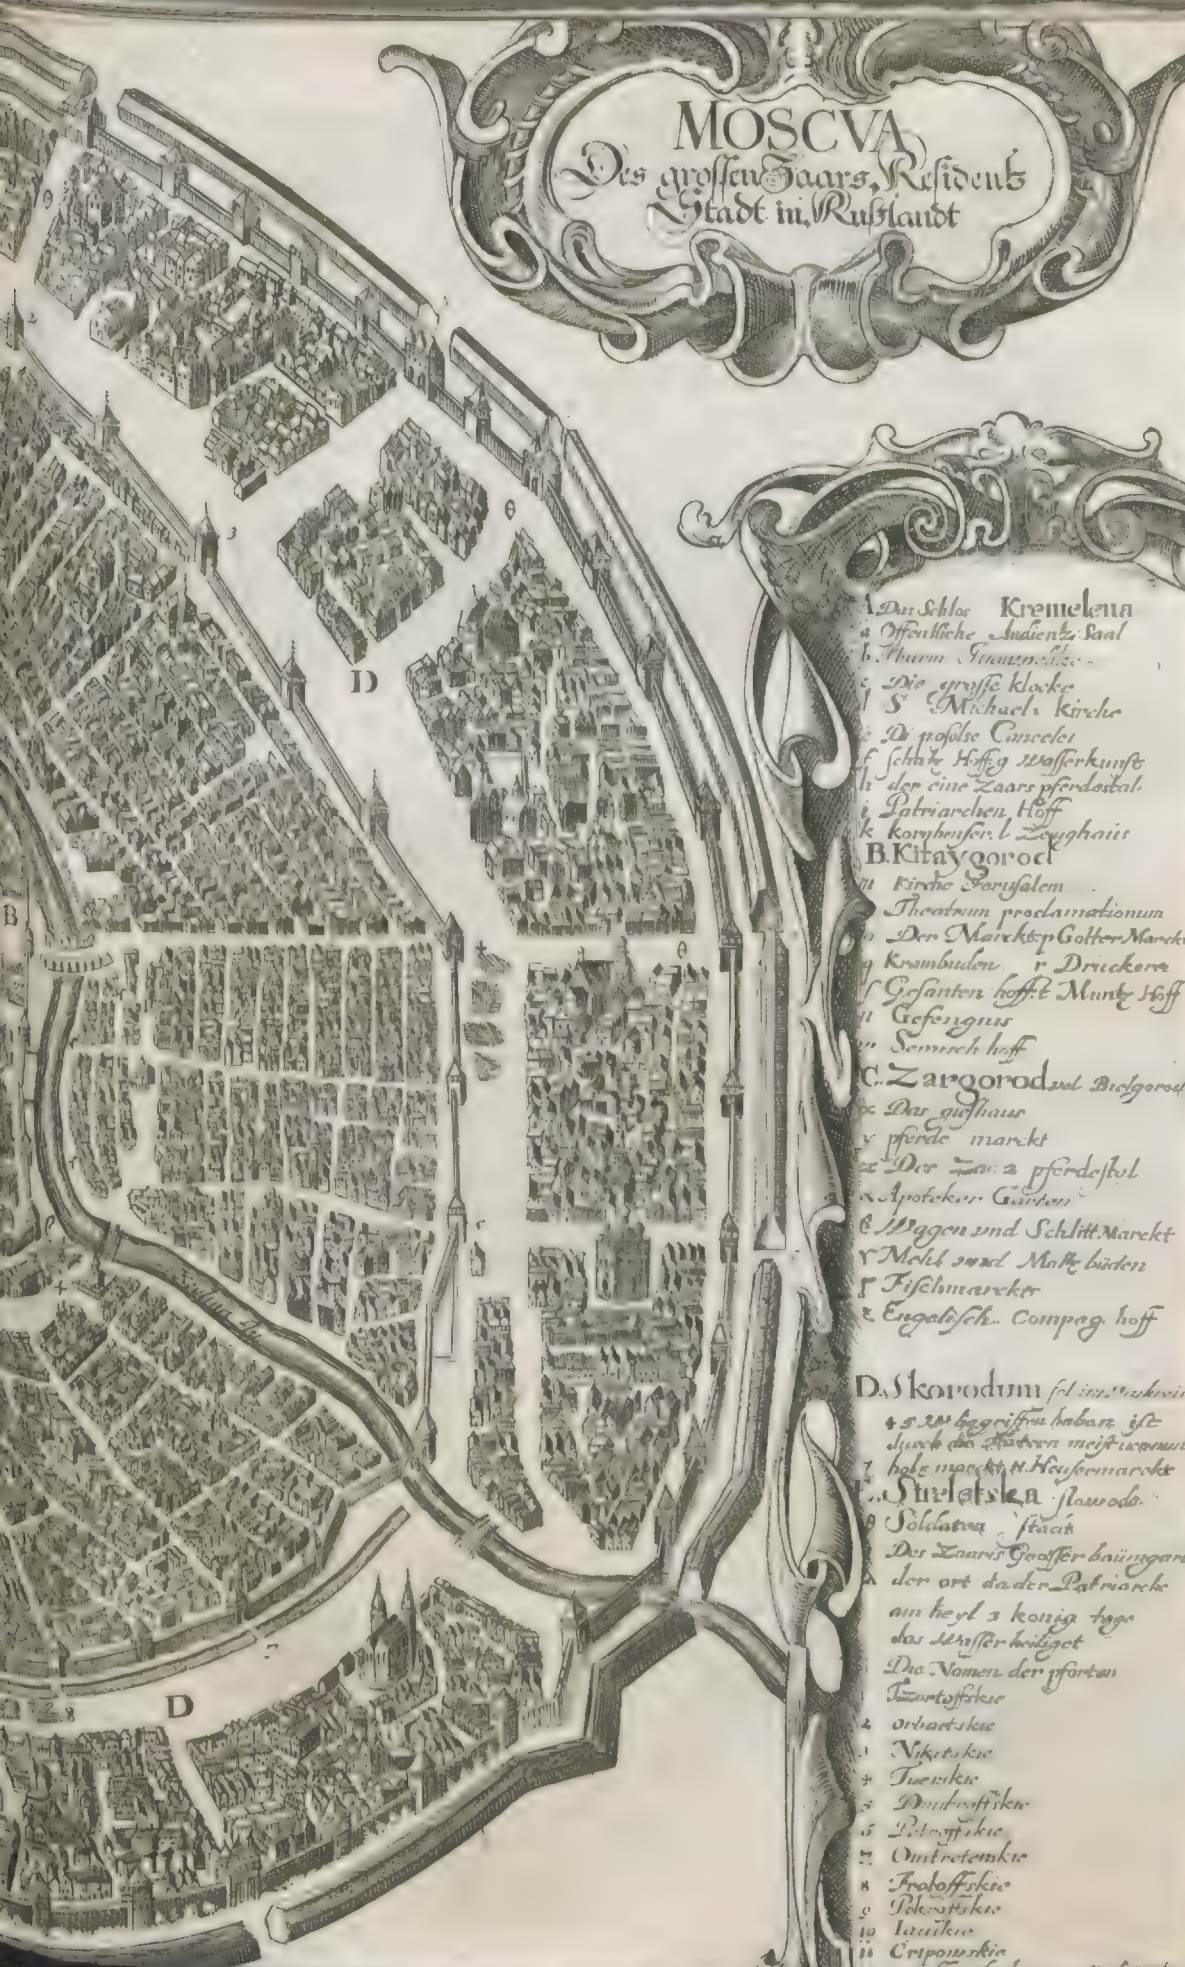 MOSCVA
Des grossen Zaars Residentz
Stadt in Rußlandt
D
B
D
A Das Schlos Kremelena
a Offentliche Audientz Saal
b Thurm
c Die grosse klocke
S Michaels Kirche
e Di posolse Cancelei
f schatz Hoff g wasserkunst
h der eine Zaars pferdestal
i Patriarchen Hoff
k Kornheuser l Zeughaus
B. Kitaygorod
m Kirche Jerusalem
Theatrum proclamationum
o Der Marckt p Götter Marckt
q Krambuden r Druckerei
s Gesanten hoff t Muntz Hoff
u Gefengnis
w Semisch hoff
C. Zargorod vel Bielgorod
x Das gieshaus
y pferde marckt
z Des pferdestal
α Apoteker Garten
β Wagen und Schlitt Marckt
γ Mehl und Maltz büden
Fischmarckt
ε Engelisch. Compag. hoff
D. Skorodum
4 5 begriffen haben ist
durch die meist
holz marckt Heusermarckt
E. Strelatska slawoda
θ Soldaten stadt
Des Zaaris Grosser baumgart
λ der ort da der Patriarche
am heyl 3 konig tage
das Wasser heiliget
Die Namen der pforten
1 Tzartoffskie
2 orbatskie
3 Nikitskie
4 Tuerskie
5 Dmitroffskie
6 Petroffskie
7 Oustretenskie
8 Froloffskie
9 Pokroffskie
10 Iauskie
11 Cripowskie